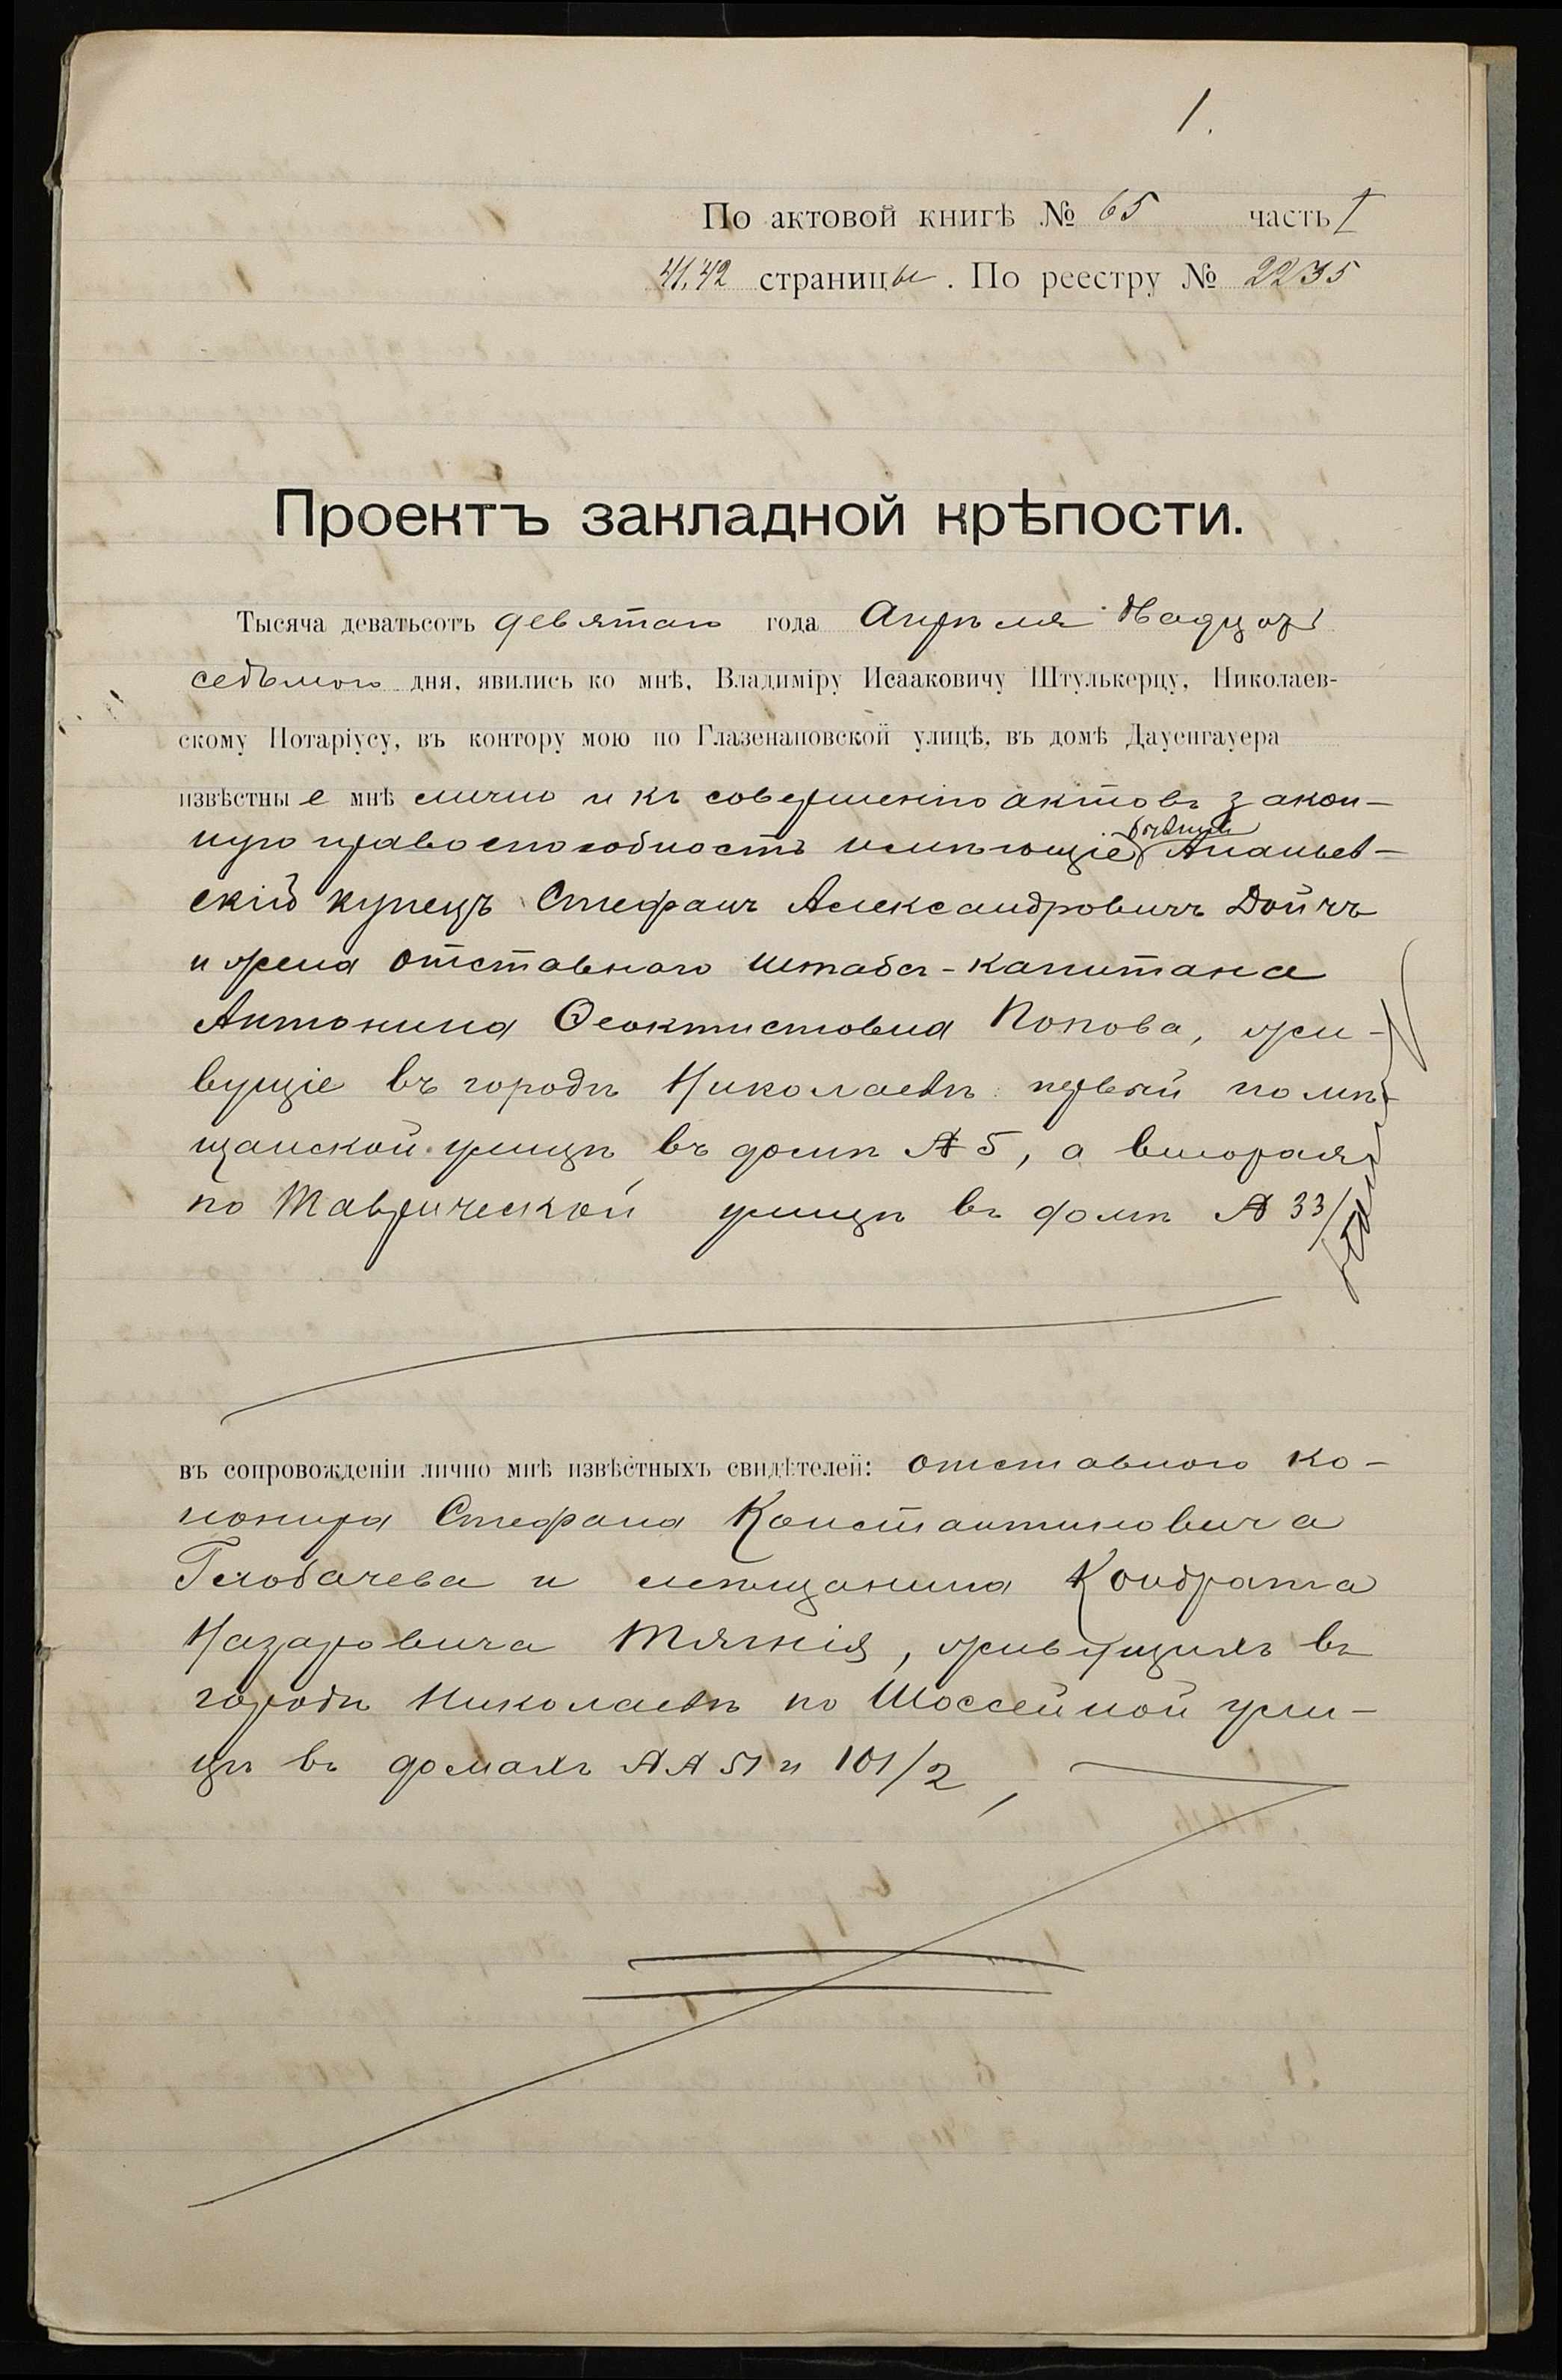 1.
По актовой книгѣ № 65 часть I
41,42 страницы. По реестру № 2235
Проектъ закладной крѣпости.
Тысяча деватьсотъ девятаго года Апрѣля двадцать
седьмого дня, явились ко мнѣ, Владиміру Исааковичу Штулькерцу, Николаев-
скому Нотаріусу, въ контору мою по Глазенаповской улицѣ, въ домѣ Дауенгауера
извѣстные мнѣ лично и къ совершенію актовъ закон-
ную правоспособность имѣющіе Ананьев-
скій купецъ Стефанъ Александровичъ Дойчъ
и жена отставного штабсъ-капитана
Антонина Ѳеоктистовна Попова, жи-
вущіе въ городѣ Николаевѣ первый по мѣ-
щанской улицѣ въ домѣ № 5, а вторая
по Таврической улицѣ въ домѣ № 33
въ сопровожденіи лично мнѣ извѣстныхъ свидѣтелей: отставного ко-
нонира Стефана Константиновича
Глобачева и мѣщанина Кондрата
Назаровича Тягнія, живущихъ въ
городѣ Николаевѣ по Шоссейной ули-
цѣ въ домахъ №№ 51 и 101/2,